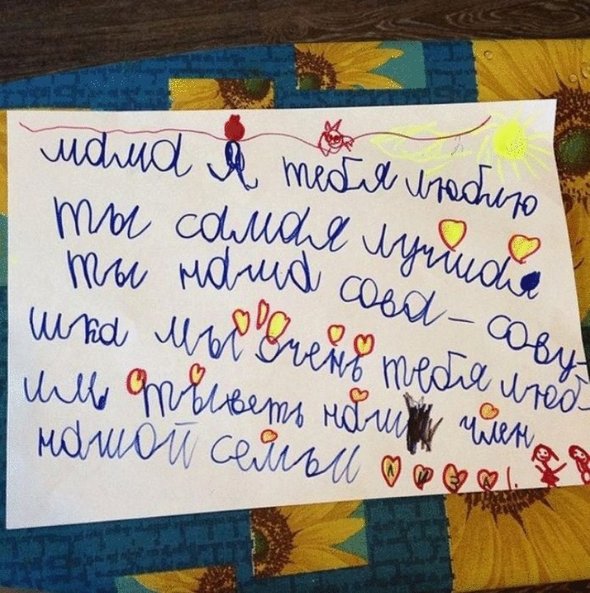 мама Я тебя люблю
ты самая лучшая
ты наша сова – сову-
шка мы очень тебя люб-
им тыветь наш член
нашой семьи